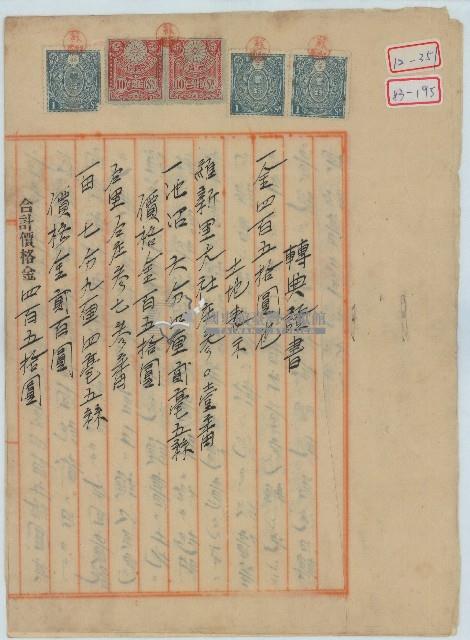 轉典證書
一金四百五拾圓也
土地表示
維新里元社庄參〇壹番
一池沼 六分四厘貳毫五絲
價格金百五拾圓
仝里仝庄參七參番
一田 七分九厘四毫五絲
價格金貳百圓
合計價格金四百五拾圓
12-351
83-195